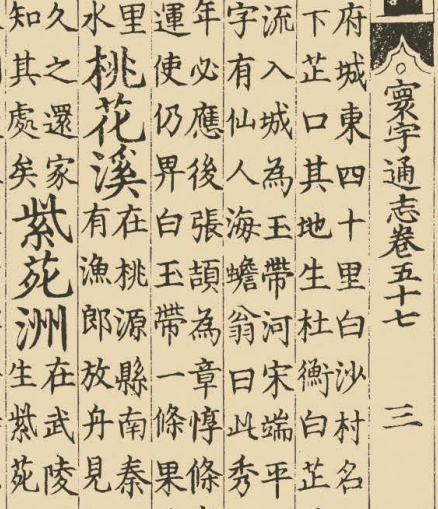 寰宇通志卷五十七 三
府城東四十里白沙村名
下芷口其地生杜衡白芷
流入城為王帶河宋端平
字有仙人海蟾翁曰此秀
年必應後張頡為章惇條
運使仍畀白玉帶一條果
里
水
桃花溪
在桃源縣南秦
有漁郎放舟見
久之還家
知其處矣
紫苑洲
在武陵
生紫苑